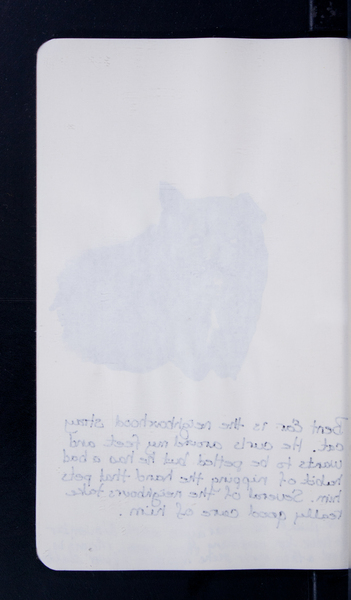 Bent Ear is the neighborhood stray
cat. He curls around my feet and
wants to be petted but he has a bad
habit of nipping the hand that pets
him. Several of the neighbours take
really good care of him.